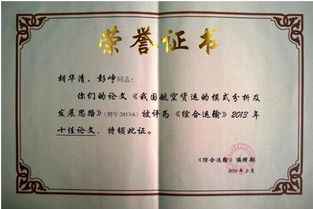 荣誉证书
胡华清、彭峥同志:
你们的论文《我国航空货运的模式分析及
发展思路》(期号2013/6)被评为《综合运输》2013年
十佳论文,特颁此证。
《综合运输》编辑部